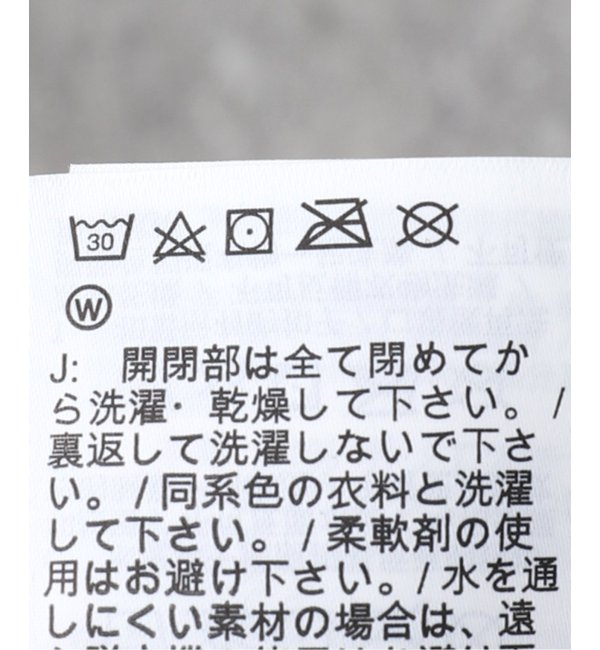 30
W
J: 開閉部は全て閉めてか
ら洗濯・乾燥して下さい。/
裏返して洗濯しないで下さ
い。/ 同系色の衣料と洗濯
して下さい。/ 柔軟剤の使
用はお避け下さい。/ 水を通
しにくい素材の場合は、遠